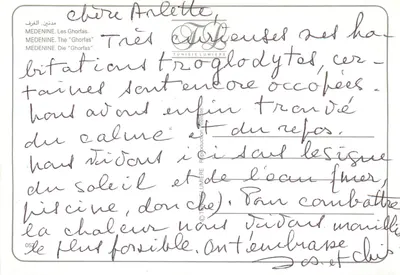 chère Arlette,
مدنين الغرف
MEDENINE. Les Ghorfas.
MEDENINE. The "Ghorfas"
MEDENINE. Die "Ghorfas"
Très curieuses ses ha-
bitations troglodytes, cer-
taines sont encore occupées.
nous avons enfin trouvé
du calme et du repos.
nous vivons ici sous le signe
du soleil et de l'eau (mer,
piscine, douche). Pour combattre
la chaleur nous vivons mouillés
le plus possible. On t'embrasse
et